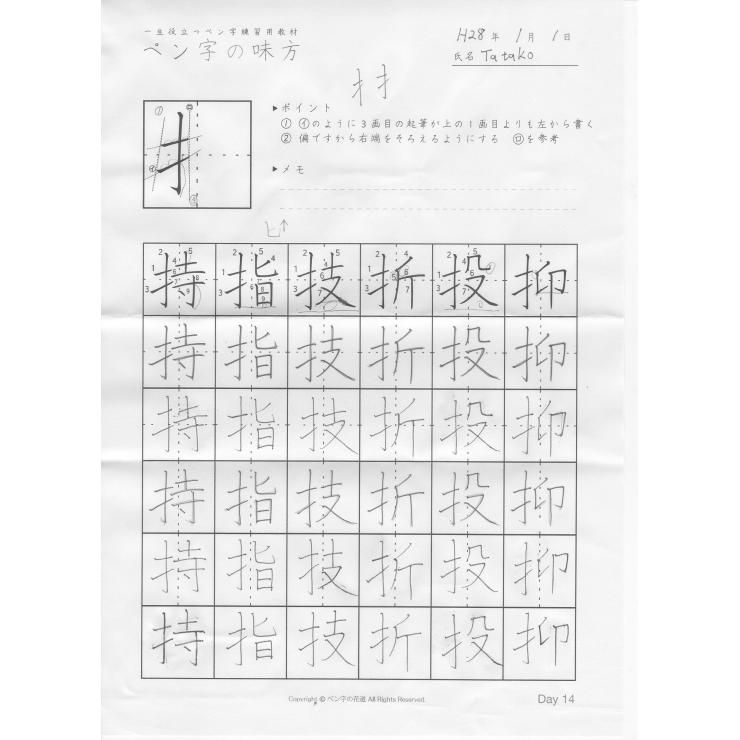 一生役立つペン字練習用教材
ペン字の味方
H28年 1月 1日
氏名 Tatako
扌扌
▶ポイント
① ㋑のように3画目の起筆が上の1画目よりも左から書く
② 偏ですから右端をそろえるようにする ㋺を参考
▶メモ
扌
ヒ↑
持 指 技 折 投 抑
持 指 技 折 投 抑
持 指 技 折 投 抑
持 指 技 折 投 抑
持 指 技 折 投 抑
持 指 技 折 投 抑
Copyright © ペン字の花道 All Rights Reserved.
Day 14